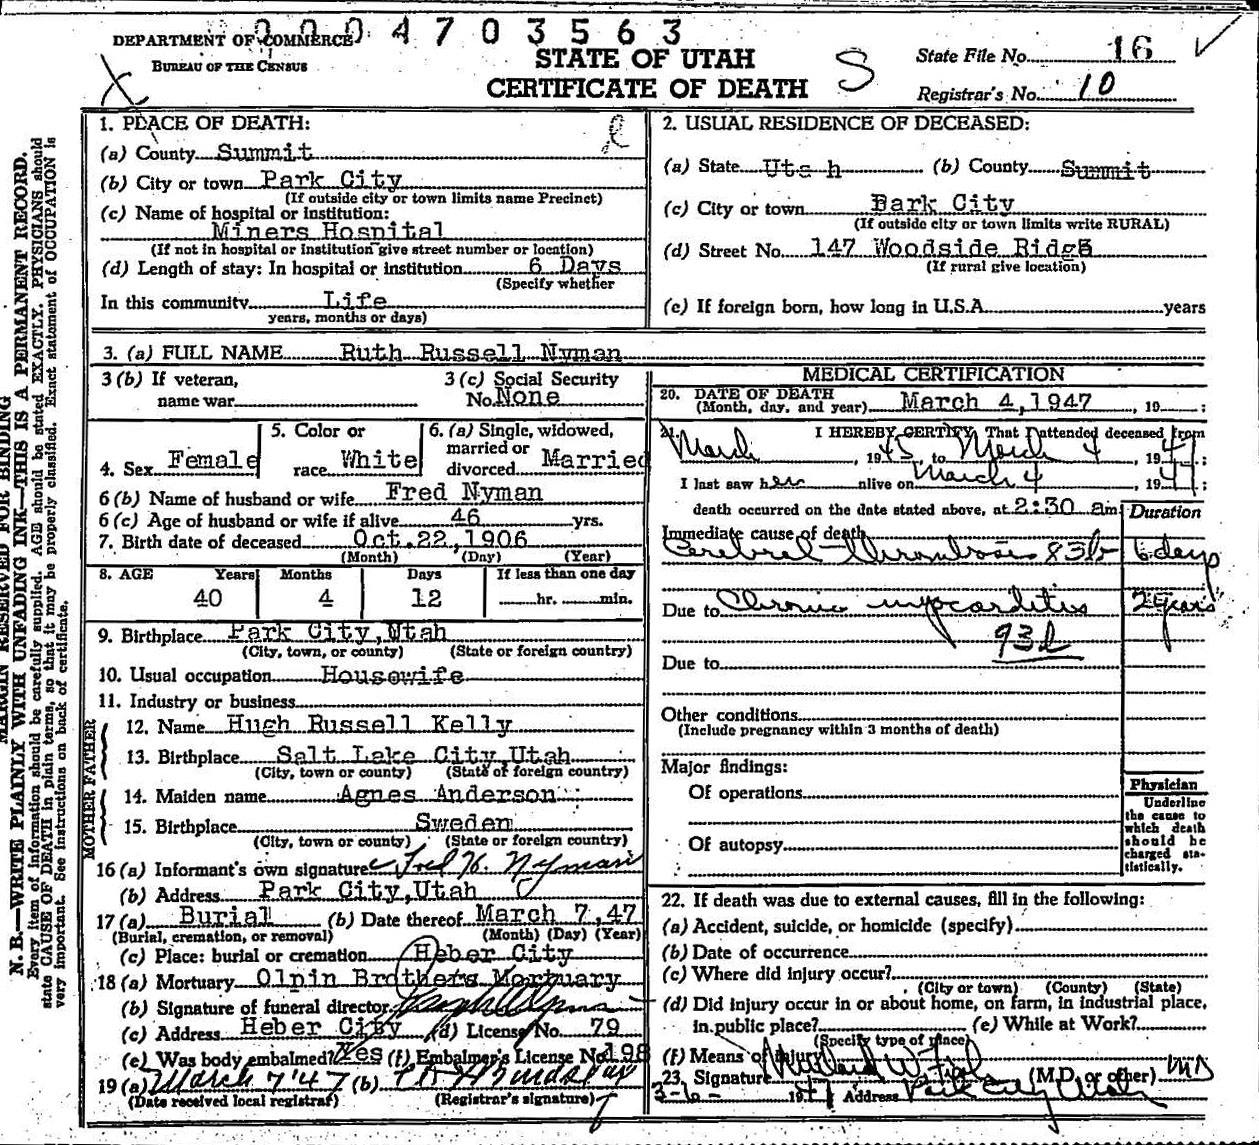 0004703563
DEPARTMENT OF COMMERCE
BUREAU OF THE CENSUS
STATE OF UTAH
CERTIFICATE OF DEATH
S
State File No. 16
Registrar's No. 10
X
MARGIN RESERVED FOR BINDING
N. B.—WRITE PLAINLY WITH UNFADING INK—THIS IS A PERMANENT RECORD.
Every item of information should be carefully supplied. AGE should be stated EXACTLY. PHYSICIANS should
state CAUSE OF DEATH in plain terms, so that it may be properly classified. Exact statement of OCCUPATION is
very important. See instructions on back of certificate.
1. PLACE OF DEATH:
(a) County Summit
(b) City or town Park City
(If outside city or town limits name Precinct)
(c) Name of hospital or institution:
Miners Hospital
(If not in hospital or institution give street number or location)
(d) Length of stay: In hospital or institution 6 Days
(Specify whether
In this community Life
years, months or days)
2. USUAL RESIDENCE OF DECEASED:
(a) State Utah (b) County Summit
(c) City or town Park City
(If outside city or town limits write RURAL)
(d) Street No. 147 Woodside Ridge
(If rural give location)
(e) If foreign born, how long in U.S.A. years
3. (a) FULL NAME Ruth Russell Nyman
3 (b) If veteran,
name war
3 (c) Social Security
No. None
4. Sex Female
5. Color or
race White
6. (a) Single, widowed,
married or
divorced Married
6 (b) Name of husband or wife Fred Nyman
6 (c) Age of husband or wife if alive 46 yrs.
7. Birth date of deceased Oct.22,1906
(Month) (Day) (Year)
8. AGE Years Months Days If less than one day
40 4 12 hr. min.
9. Birthplace Park City,Utah
(City, town, or county) (State or foreign country)
10. Usual occupation Housewife
11. Industry or business
FATHER
12. Name Hugh Russell Kelly
13. Birthplace Salt Lake City,Utah
(City, town or county) (State of foreign country)
MOTHER
14. Maiden name Agnes Anderson
15. Birthplace Sweden
(City, town or county) (State or foreign country)
16 (a) Informant's own signature Fred H. Nyman
(b) Address Park City,Utah
17 (a) Burial (b) Date thereof March 7,47
(Burial, cremation, or removal) (Month) (Day) (Year)
(c) Place: burial or cremation Heber City
18 (a) Mortuary Olpin Brothers Mortuary
(b) Signature of funeral director
(c) Address Heber City (d) License No. 79
(e) Was body embalmed? Yes (f) Embalmer's License No. 198
19 (a) March 7 '47 (b)
(Date received local registrar) (Registrar's signature)
MEDICAL CERTIFICATION
20. DATE OF DEATH
(Month, day, and year) March 4,1947, 19 ;
21. I HEREBY CERTIFY That I attended deceased from
March, 1945, to March 4, 1947;
I last saw her alive on March 4, 1947;
death occurred on the date stated above, at 2:30 am
Duration
Immediate cause of death
Cerebral Thrombosis 83b 6 days
Due to Chronic myocarditis 2 years
93d
Due to
Other conditions
(Include pregnancy within 3 months of death)
Major findings:
Of operations
Of autopsy
Physician
Underline
the cause to
which death
should be
charged sta-
tistically.
22. If death was due to external causes, fill in the following:
(a) Accident, suicide, or homicide (specify)
(b) Date of occurrence
(c) Where did injury occur?
(City or town) (County) (State)
(d) Did injury occur in or about home, on farm, in industrial place,
in public place? (e) While at Work?
(Specify type of place)
(f) Means of injury
23. Signature (M.D. or other) MD
3-6- 1947 Address Park City Utah